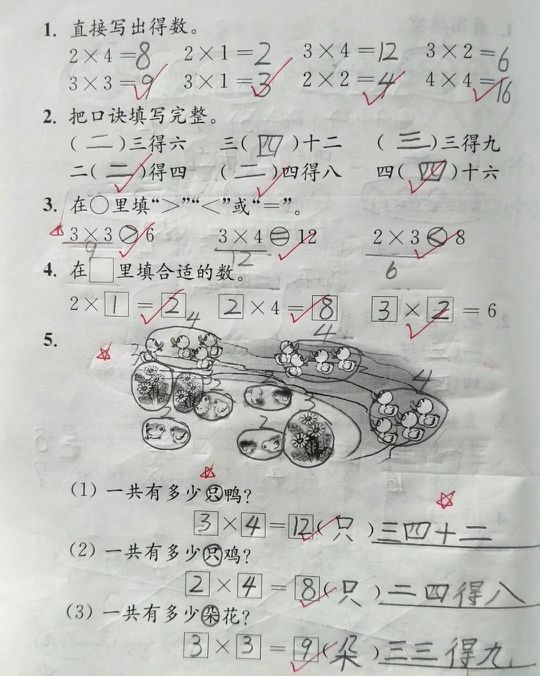 1. 直接写出得数。
2×4=8 2×1=2 3×4=12 3×2=6
3×3=9 3×1=3 2×2=4 4×4=16
2. 把口诀填写完整。
(二)三得六 三(四)十二 (三)三得九
二(二)得四 (二)四得八 四(四)十六
3. 在○里填“>”“<”或“=”。
3×3>6 3×4=12 2×3<8
9 12 6
4. 在□里填合适的数。
2×1=2 2×4=8 3×2=6
5.
4
4
3
4
2
2
(1) 一共有多少只鸭?
3×4=12(只) 三四十二
(2) 一共有多少只鸡?
2×4=8(只) 二四得八
(3) 一共有多少朵花?
3×3=9(朵) 三三得九